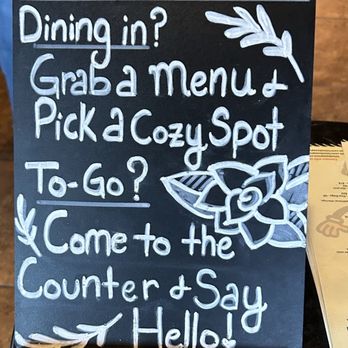 Dining in?
Grab a Menu &
Pick a Cozy Spot
To-Go?
Come to the
Counter & Say
Hello!